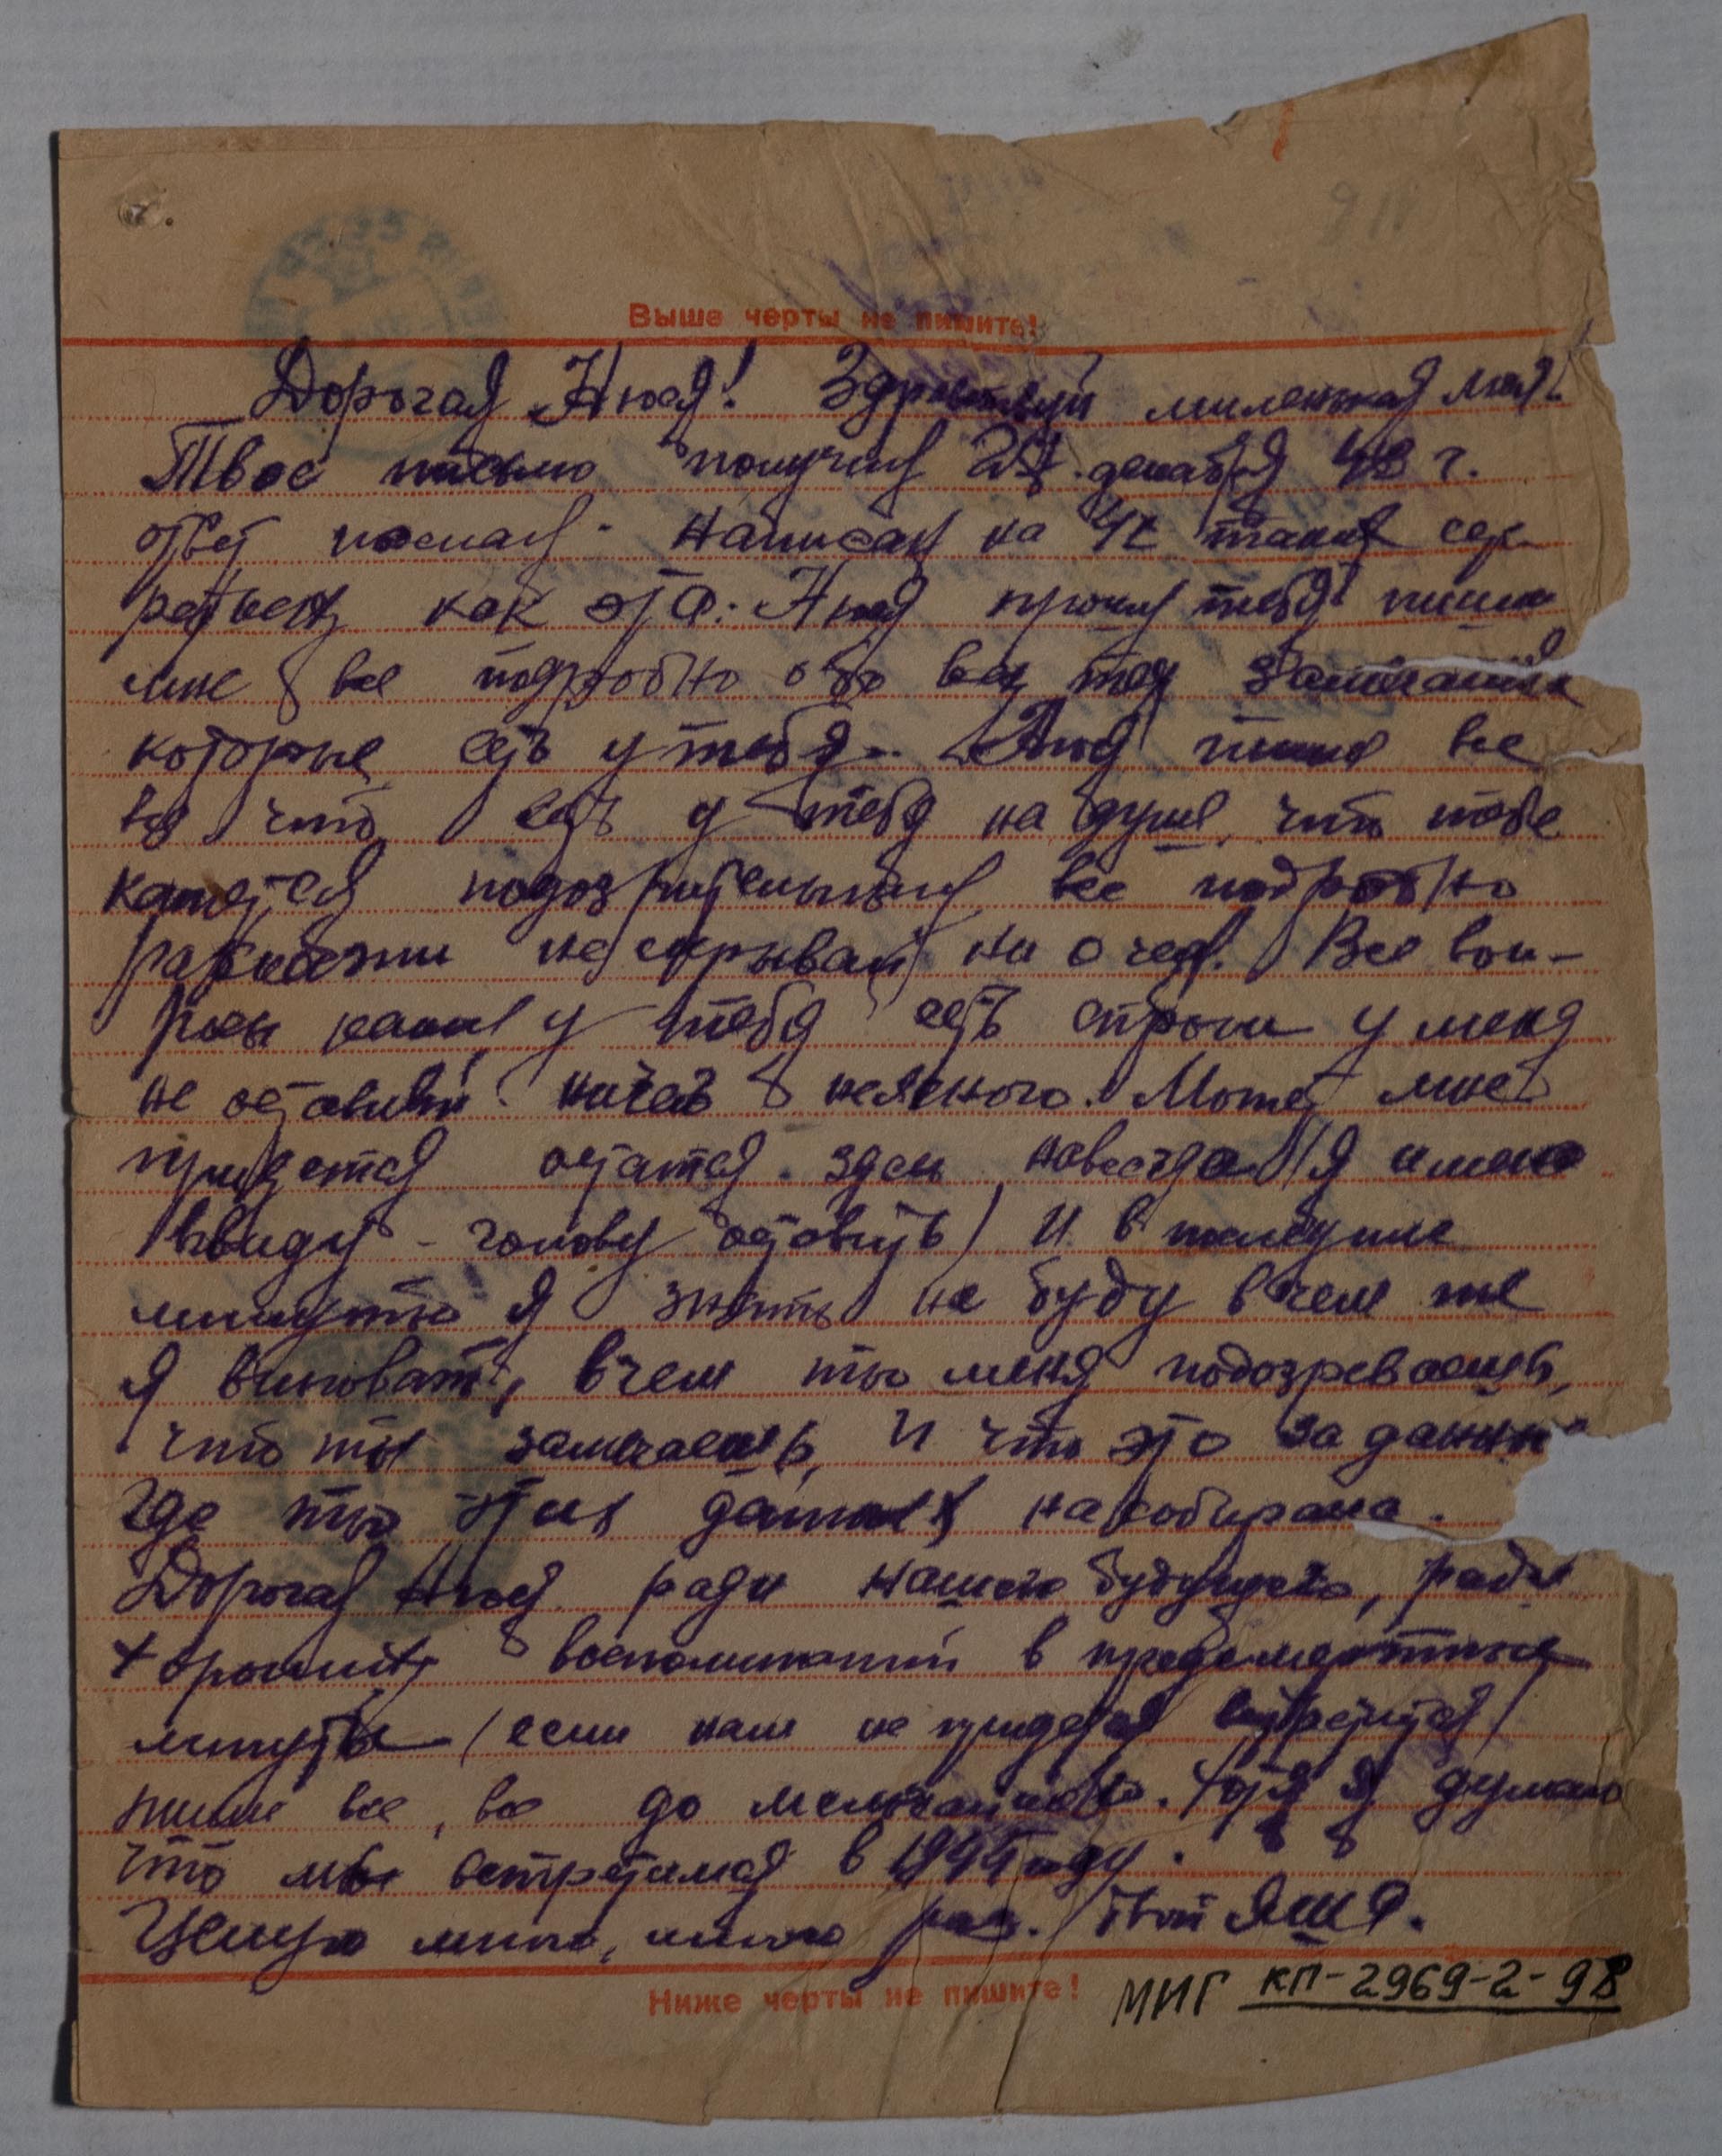 Выше черты не пишите!
Дорогая Нюся! Здраствуй миленькая моя!
Твое письмо получил 27 декабря 43 г.
Ответ послал. Написал на 4х таких сек-
ретках как эта. Нюся прошу тебя пиши
мне все подробно обо всех тех замечаниях
которые есть у тебя. Нюся пиши все
все что есть у тебя на душе, что тебе
кажется подозрительным все подробно
раскажи не скрывай ни о чем. Все воп-
росы какие у тебя есть спроси у меня
не оставляй ничего неясного. Может мне
придется остатся здесь навсегда (я имею
ввиду - голову оставить) И в последние
минуты я знать не буду в чем же
я виноват, в чем ты меня подозреваешь,
что ты замечаешь, И что это за данные
где ты этих данных насобирала.
Дорогая Нюся ради нашего будущего, ради
хороших воспоминаний в предсмертные
минуты (если нам не придется встретится)
пиши все, все до мельчайшего. Хотя я думаю
что мы встретимся в 1944 году.
Целую много, много раз. Твой Яша.
Ниже черты не пишите!
МИГ КП-2969-2-98